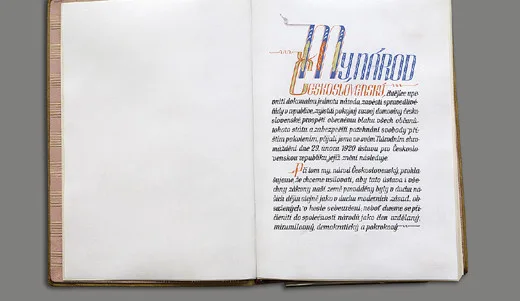 My, NÁROD
ČESKOSLOVENSKÝ,
chtějíce upe-
vniti dokonalou jednotu národa, zavésti spravedlivé
řády v republice, zajistiti pokojný rozvoj domoviny česko-
slovenské, prospěti obecnému blahu všech občanů
tohoto státu a zabezpečiti požehnání svobody pří-
štím pokolením, přijali jsme ve svém Národním shro-
máždění dne 29. února 1920 ústavu pro Českoslo-
venskou republiku, jejíž znění následuje.
Při tom my, národ Československý, prohla-
šujeme, že chceme usilovati, aby tato ústava i vše-
chny zákony naší země prováděny byly v duchu na-
šich dějin stejně jako v duchu moderních zásad, ob-
sažených v hesle sebeurčení, neboť chceme se při-
členiti do společnosti národů jako člen vzdělaný,
mírumilovný, demokratický a pokrokový